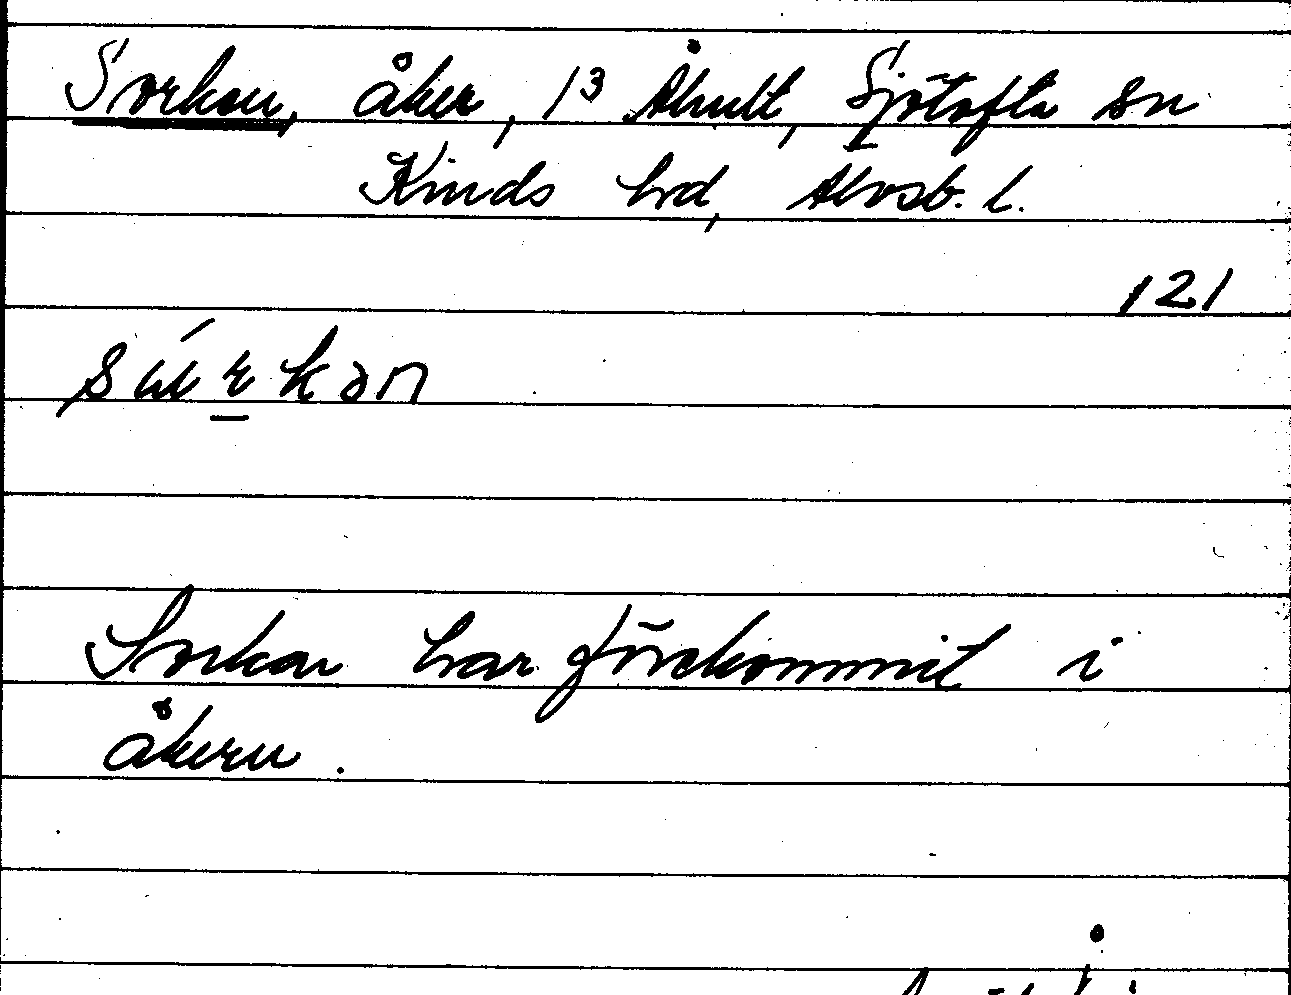 Sorken, åker, 1³ Åhult, Sjötofta sn
Kinds hd, Älvsb. l.
121
Sorkar har förekommit i
åkern.